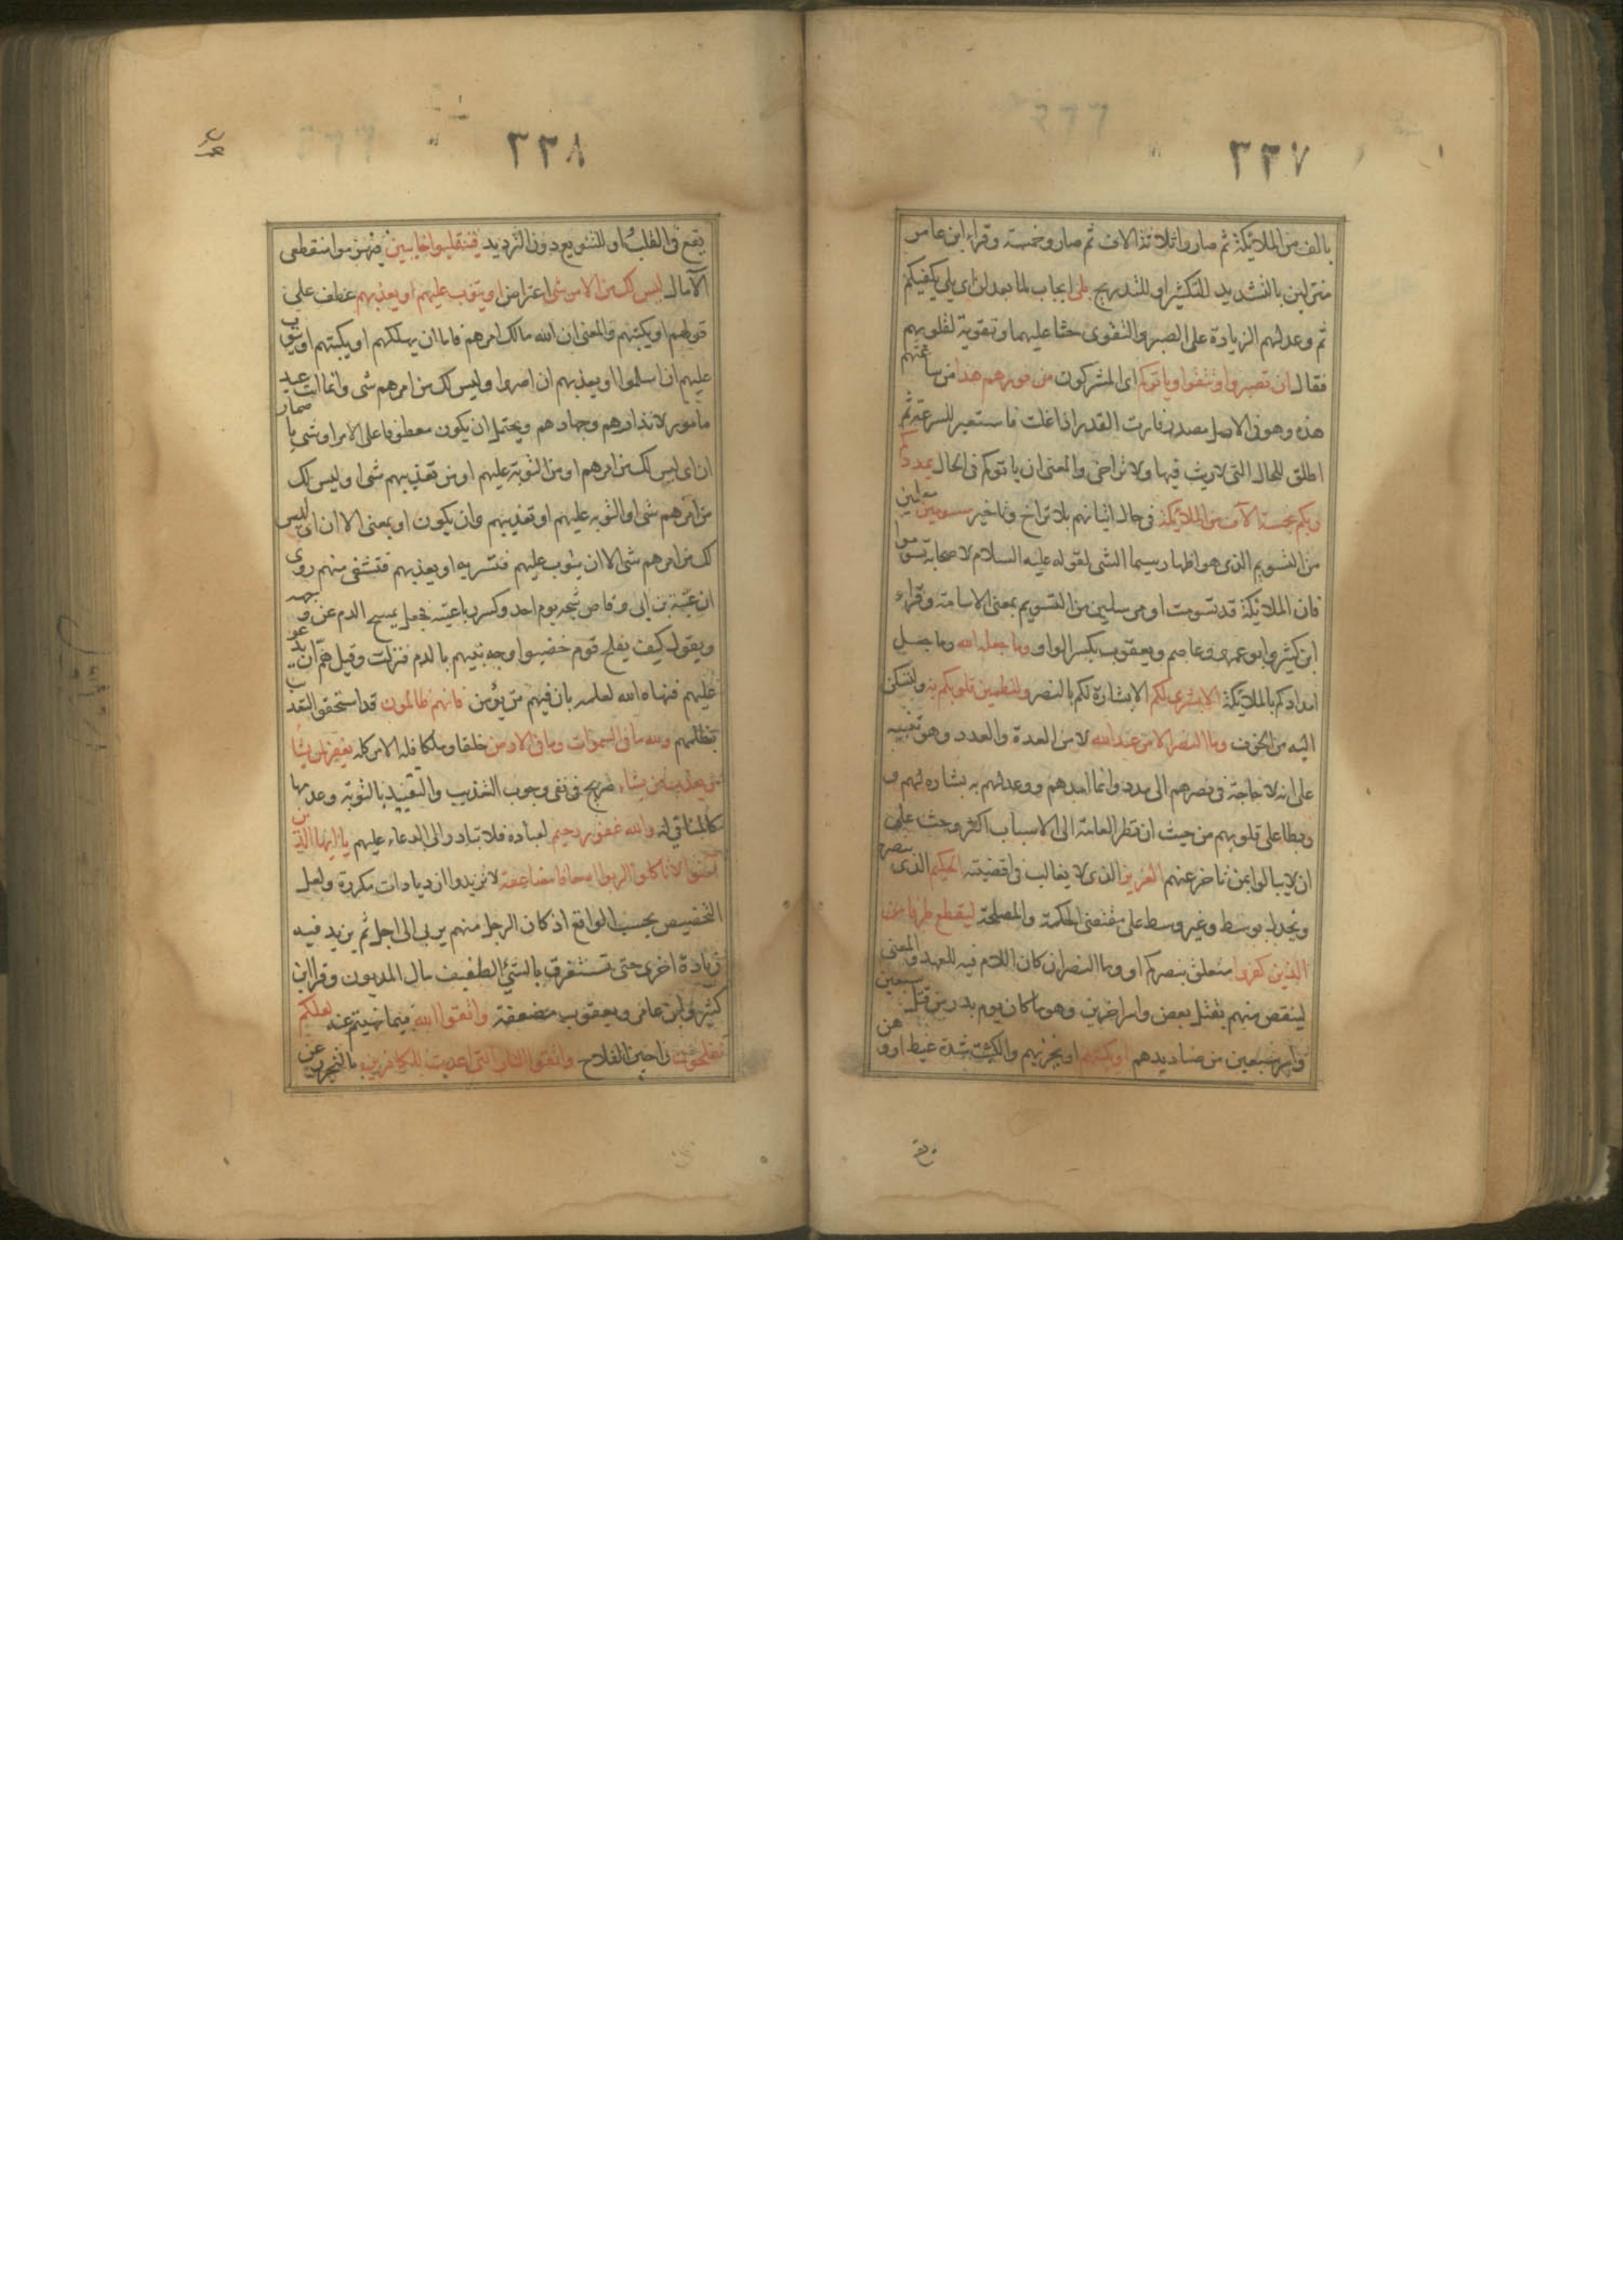 ٣٣٧
بالف من الملائكة ثم صاروا ثلاثة الاف ثم صاروا خمسة وقراء ابن عامر
منزلين بالتشديد للتكثير او للتدريج بلى ايجاب لما بعد لن اى بلى يكفيكم
ثم وعد لهم الزيادة على الصبر والتقوى حثا عليهما وتقوية لقلوبهم
فقال ان تصبروا وتتقوا وياتوكم اى المشركون من فورهم هذا من ساعتهم
هذه وهو فى الاصل مصدر فارت القدر اذا غلت فاستعير للسرعة ثم
اطلق للحال التى لا ريث فيها ولا تراخى والمعنى ان ياتوكم فى الحال يمددكم
ربكم بخمسة الآف من الملائكة فى حال اتيانهم بلا تراخ وتاخير مسومين معلمين
من التسويم الذى هو اظهار سيما الشى لقوله عليه السلام لاصحابه تسوموا
فان الملائكة قد تسومت او مرسلين من التسويم بمعنى الاسامة وقراء
ابن كثير وابو عمرو وعاصم ويعقوب بكسر الواو وما جعله الله وما جعل
امدادكم بالملائكة الا بشرى لكم الا بشارة لكم بالنصر ولتطمئن قلوبكم به ولتسكن
اليه من الخوف وما النصر الا من عند الله لا من العدة والعدد وهو تنبيه
على انه لا حاجة فى نصرهم الى مدد وانما امدهم ووعدلهم به بشارة لهم و
ربطا على قلوبهم من حيث ان نظر العامة الى الاسباب اكثر وحث على
ان لا يبالوا بمن تاخر عنهم العزيز الذى لا يغالب فى اقضيته الحكيم الذى ينصر
ويخذل بوسط وغير وسط على مقتضى الحكمة والمصلحة ليقطع طرفا من
الذين كفروا متعلق بنصركم او وما النصر ان كان اللام فيه للعهد والمعنى
لينقص منهم بقتل بعض واسر اخرين وهو ما كان يوم بدر من قتل سبعين
واسر سبعين من صناديدهم او يكبتهم او يخزيهم والكبت شدة غيظ او وهن
٣٣٨
يقع فى القلب او للتنويع دون الترديد فينقلبوا خائبين فينهزموا منقطعى
الآمال ليس لك من الامر شى اعتراض او يتوب عليهم او يعذبهم عطف على
قوله او يكبتهم والمعنى ان الله مالك امرهم فاما ان يهلكهم او يكبتهم او يتوب
عليهم ان اسلموا او يعذبهم ان اصروا وليس لك من امرهم شى وانما انت عبد
مامور لانذارهم وجهادهم ويحتمل ان يكون معطوفا على الامر او شى باضمار
ان اى ليس لك من امرهم او من التوبة عليهم او من تعذيبهم شى او ليس لك
من امرهم شى او التوبه عليهم او تعذيبهم وان يكون او بمعنى الا ان اى ليس
لك من امرهم شى الا ان يتوب عليهم فتسر به او يعذبهم فتشفى منهم روى
ان عتبة بن ابى وقاص شجه يوم احد وكسر رباعيته فجعل يمسح الدم عن وجهه
ويقول كيف يفلح قوم خضبوا وجه نبيهم بالدم فنزلت وقيل هم ان يدعو
عليهم فنهاه الله لعلمه بان فيهم من يؤمن فانهم ظالمون قد استحقوا التعذيب
بظلمهم ولله ما فى السموات وما فى الارض خلقا وملكا فله الامر كله يغفر لمن يشأ
ويعذب من يشاء صريح فى نفى وجوب التعذيب والتقييد بالتوبة وعدمها
كالمنافى له والله غفور رحيم لعباده فلا تبادر الى الدعاء عليهم يا ايها الذين
آمنوا لا تاكلوا الربوا اضعافا مضاعفة لا تزيدوا ازديادات مكررة ولعل
التخصيص بحسب الواقع اذ كان الرجل منهم يربى الى اجل ثم يزيد فيه
زيادة اخرى حتى تستغرق بالشئ الطفيف مال المديون وقرا ابن
كثير وابن عامر ويعقوب مضعفة واتقوا الله فيما نهيتم عنه لعلكم
تفلحون راجين الفلاح واتقوا النار التى اعدت للكافرين بالتحرز عن